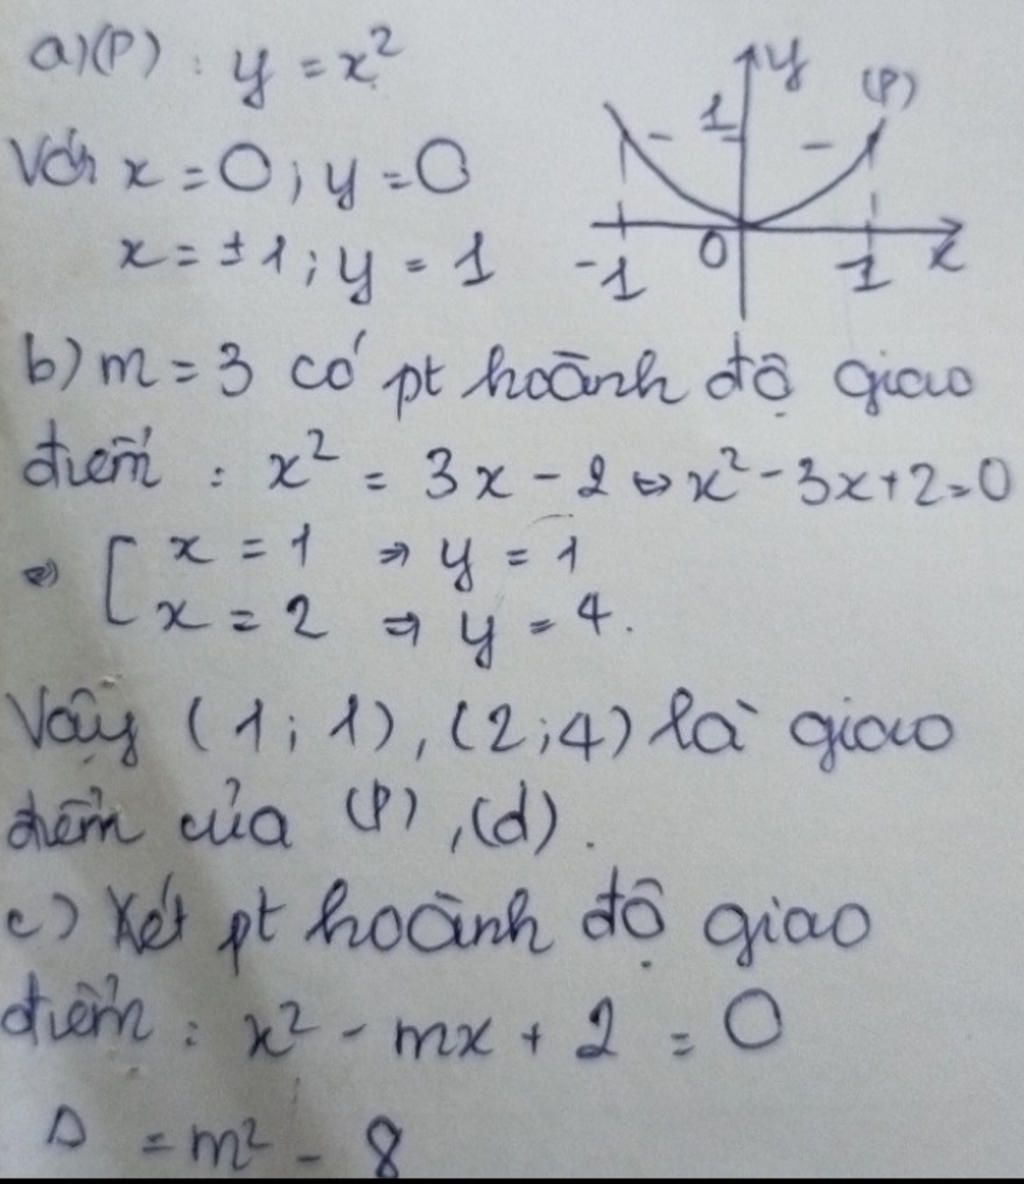 a)(P) : y = x²
Với x = 0 ; y = 0
x = ± 1 ; y = 1
y
(P)
1
-1 O 1 x
b) m = 3 có pt hoành độ giao
điểm : x² = 3x - 2 ⇔ x² - 3x + 2 = 0
⇔ [ x = 1 ⇒ y = 1
x = 2 ⇒ y = 4.
Vậy (1 ; 1), (2 ; 4) là giao
điểm của (P), (d).
c) Xét pt hoành độ giao
điểm : x² - mx + 2 = 0
Δ = m² - 8